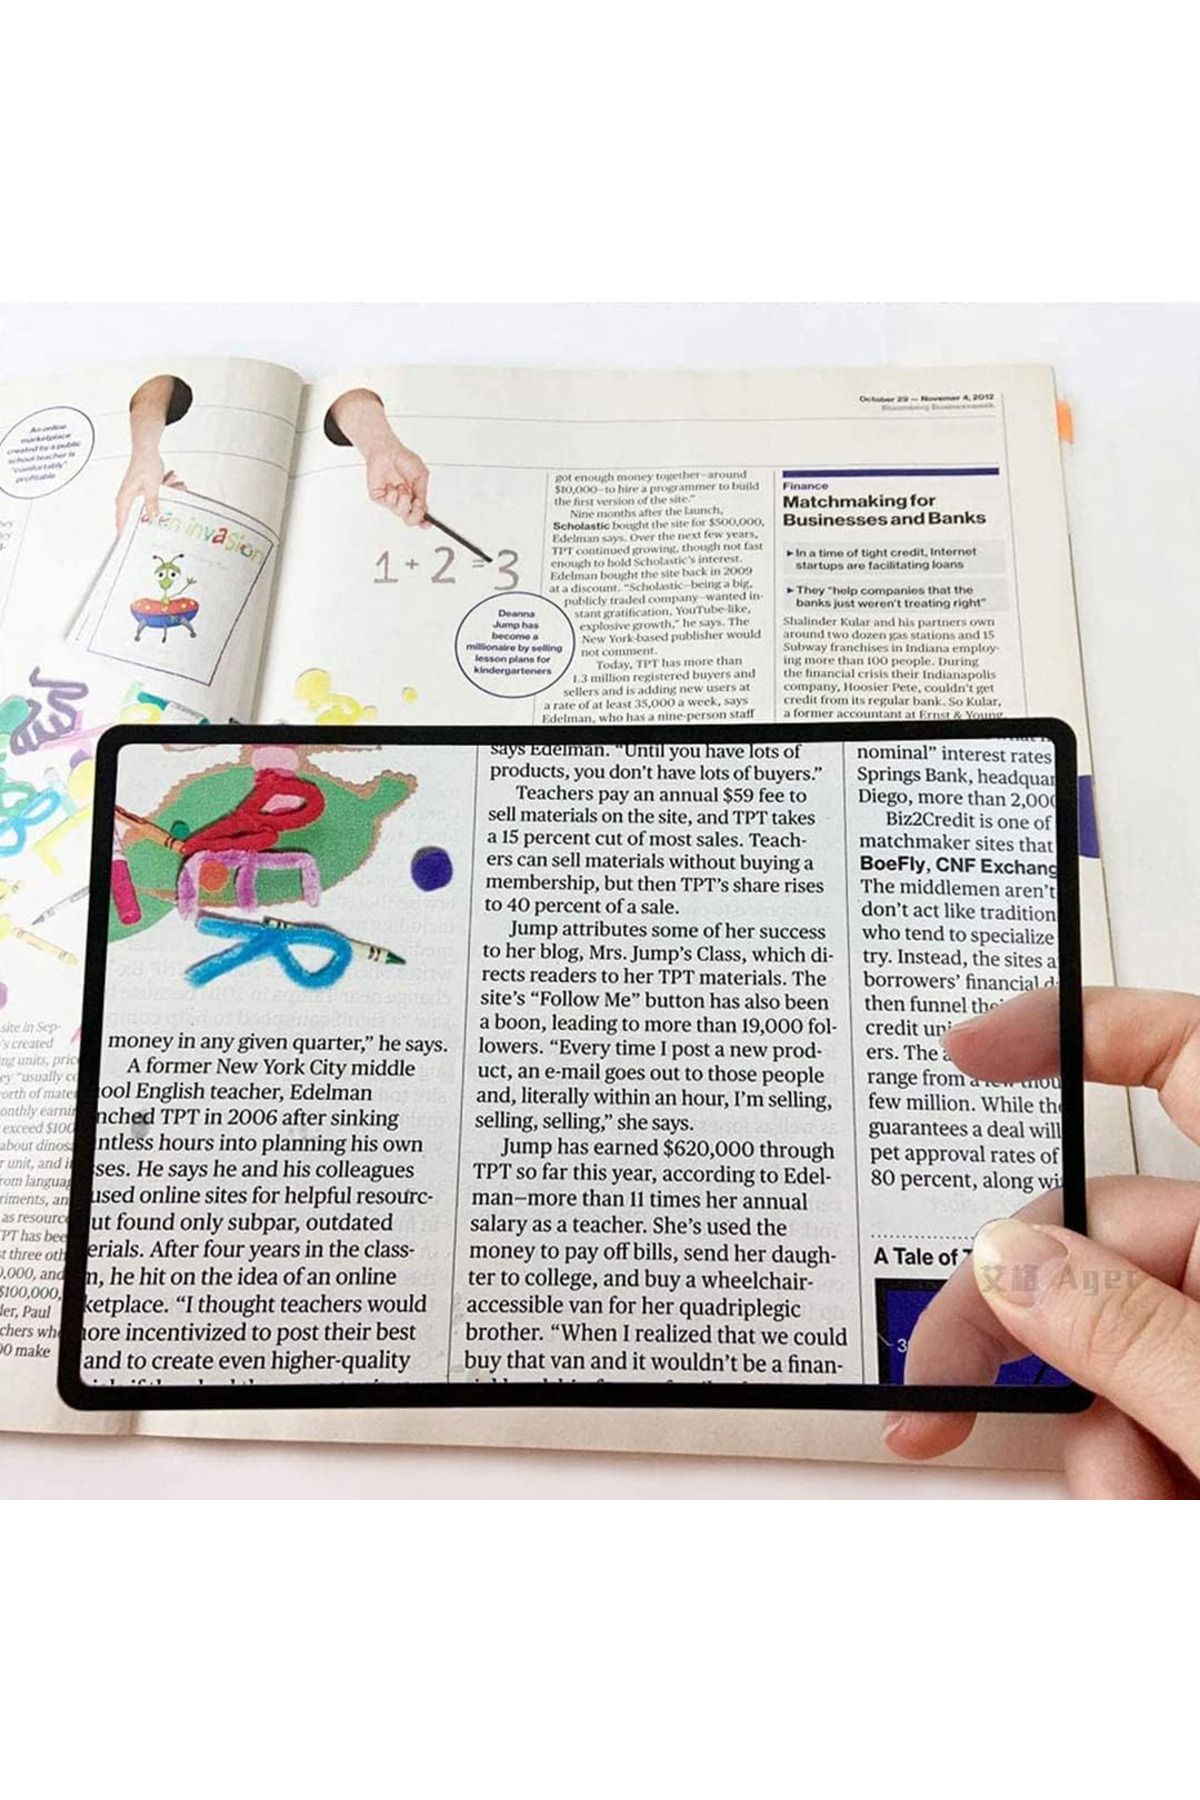 An online
marketplace
created by a public
school teacher is
"comfortably"
profitable
alien invasion
1+2=3
Deanna
Jump has
become a
millionaire by selling
lesson plans for
kindergarteners
October 29 — November 4, 2012
Bloomberg Businessweek
got enough money together—around
$10,000—to hire a programmer to build
the first version of the site."
Nine months after the launch,
Scholastic bought the site for $500,000,
Edelman says. Over the next few years,
TPT continued growing, though not fast
enough to hold Scholastic's interest.
Edelman bought the site back in 2009
at a discount. "Scholastic—being a big,
publicly traded company—wanted in-
stant gratification, YouTube-like,
explosive growth," he says. The
New York-based publisher would
not comment.
Today, TPT has more than
1.3 million registered buyers and
sellers and is adding new users at
a rate of at least 35,000 a week, says
Edelman, who has a nine-person staff
Finance
Matchmaking for
Businesses and Banks
▸In a time of tight credit, Internet
startups are facilitating loans
▸They "help companies that the
banks just weren't treating right"
Shalinder Kular and his partners own
around two dozen gas stations and 15
Subway franchises in Indiana employ-
ing more than 100 people. During
the financial crisis their Indianapolis
company, Hoosier Pete, couldn't get
credit from its regular bank. So Kular,
a former accountant at Ernst & Young,
site in Sep-
's created
ng units, pric
ey "usually co
orth of mater
onthly earnin
exceed $100
about dinos
r unit, and i
rom languag
riments, an
as resource
PT has bee
t three oth
,000, and
$100,000,
ler, Paul
chers wh
00 make
money in any given quarter," he says.
A former New York City middle
ool English teacher, Edelman
nched TPT in 2006 after sinking
ntless hours into planning his own
ses. He says he and his colleagues
used online sites for helpful resourc-
ut found only subpar, outdated
erials. After four years in the class-
m, he hit on the idea of an online
ketplace. "I thought teachers would
ore incentivized to post their best
and to create even higher-quality
says Edelman. "Until you have lots of
products, you don't have lots of buyers."
Teachers pay an annual $59 fee to
sell materials on the site, and TPT takes
a 15 percent cut of most sales. Teach-
ers can sell materials without buying a
membership, but then TPT's share rises
to 40 percent of a sale.
Jump attributes some of her success
to her blog, Mrs. Jump's Class, which di-
rects readers to her TPT materials. The
site's "Follow Me" button has also been
a boon, leading to more than 19,000 fol-
lowers. "Every time I post a new prod-
uct, an e-mail goes out to those people
and, literally within an hour, I'm selling,
selling, selling," she says.
Jump has earned $620,000 through
TPT so far this year, according to Edel-
man—more than 11 times her annual
salary as a teacher. She's used the
money to pay off bills, send her daugh-
ter to college, and buy a wheelchair-
accessible van for her quadriplegic
brother. "When I realized that we could
buy that van and it wouldn't be a finan-
nominal" interest rates
Springs Bank, headquar
Diego, more than 2,000
Biz2Credit is one of
matchmaker sites that
BoeFly, CNF Exchang
The middlemen aren't
don't act like tradition
who tend to specialize
try. Instead, the sites a
borrowers' financial d
then funnel the
credit uni
ers. The a
range from a few thou
few million. While the
guarantees a deal will
pet approval rates of
80 percent, along wi
A Tale of T
艾格 Ager
3